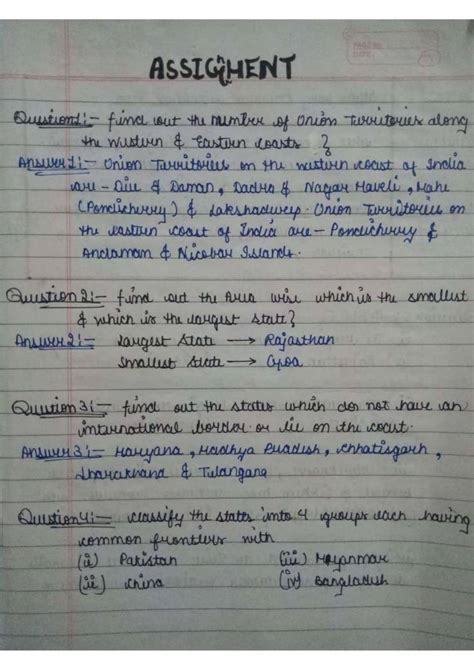 PAGE NO.
DATE:
ASSIGNMENT
Question1:- find out the number of Union Territories along
the western & Eastern coasts ?
Answer1:- Union Territories on the western coast of India
are - Diu & Daman, Dadra & Nagar Haveli, Mahe
(Pondicherry) & Lakshadweep. Union Territories on
the eastern coast of India are - Pondicherry &
Andaman & Nicobar Islands.
Question2:- find out the Area wise which is the smallest
& which is the largest state?
Answer2:- Largest state → Rajasthan
Smallest state → Goa
Question3:- find out the states which do not have an
international border or lie on the coast.
Answer3:- Haryana, Madhya Pradesh, Chhatisgarh,
Jharakhand & Telangana
Question4:- classify the states into 4 groups each having
common frontiers with
(i) Pakistan (iii) Myanmar
(ii) china (iv) Bangladesh